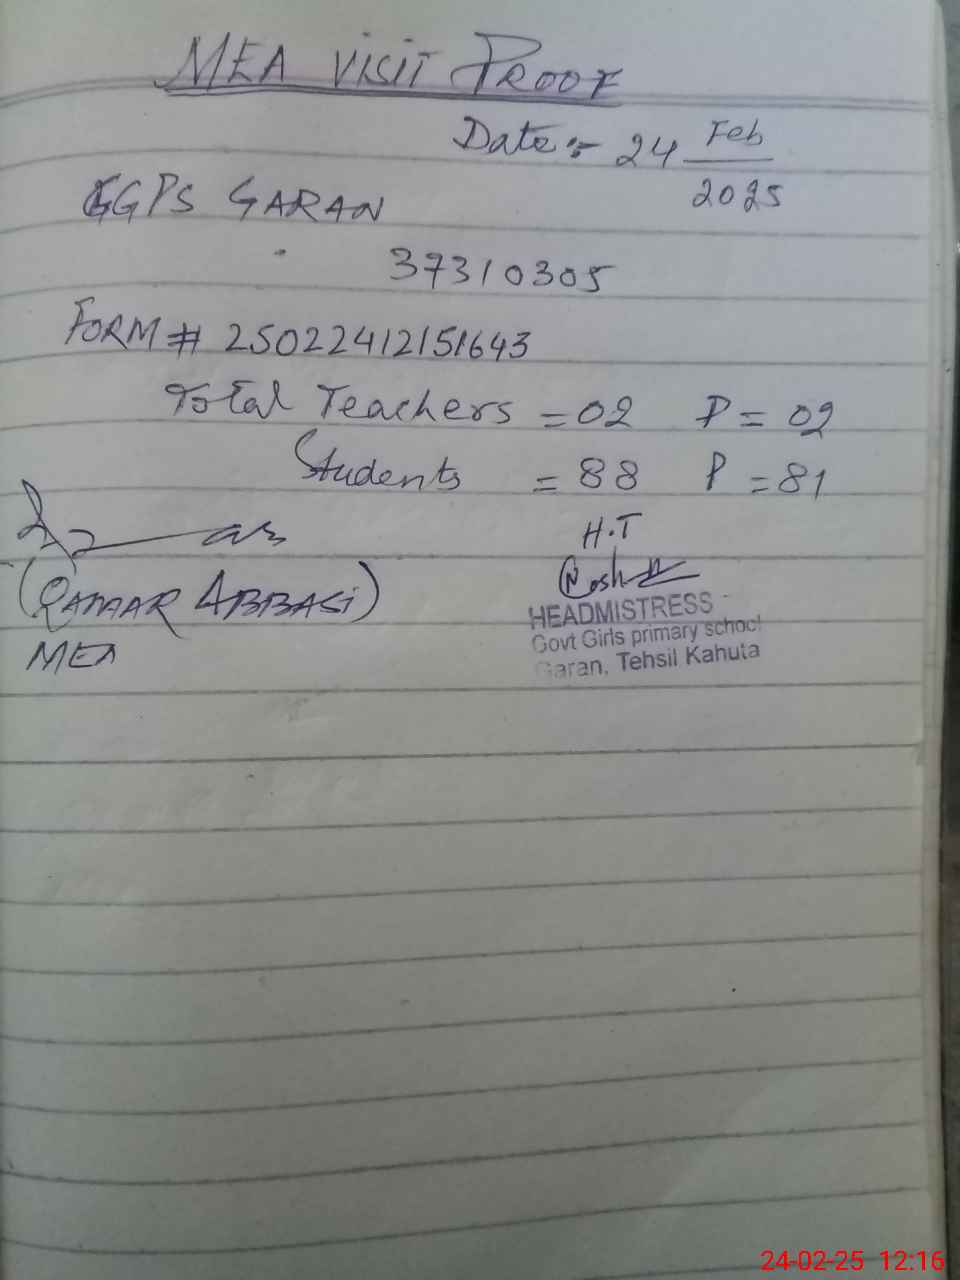 MEA VISIT PROOF
Date:- 24 Feb 2025
GGPS GARAN
37310305
FORM # 25022412151643
Total Teachers = 02 P = 02
Students = 88 P = 81
H.T
(QAMAR ABBASI)
MEA
HEADMISTRESS
Govt Girls primary school
Garan, Tehsil Kahuta
24-02-25 12:16